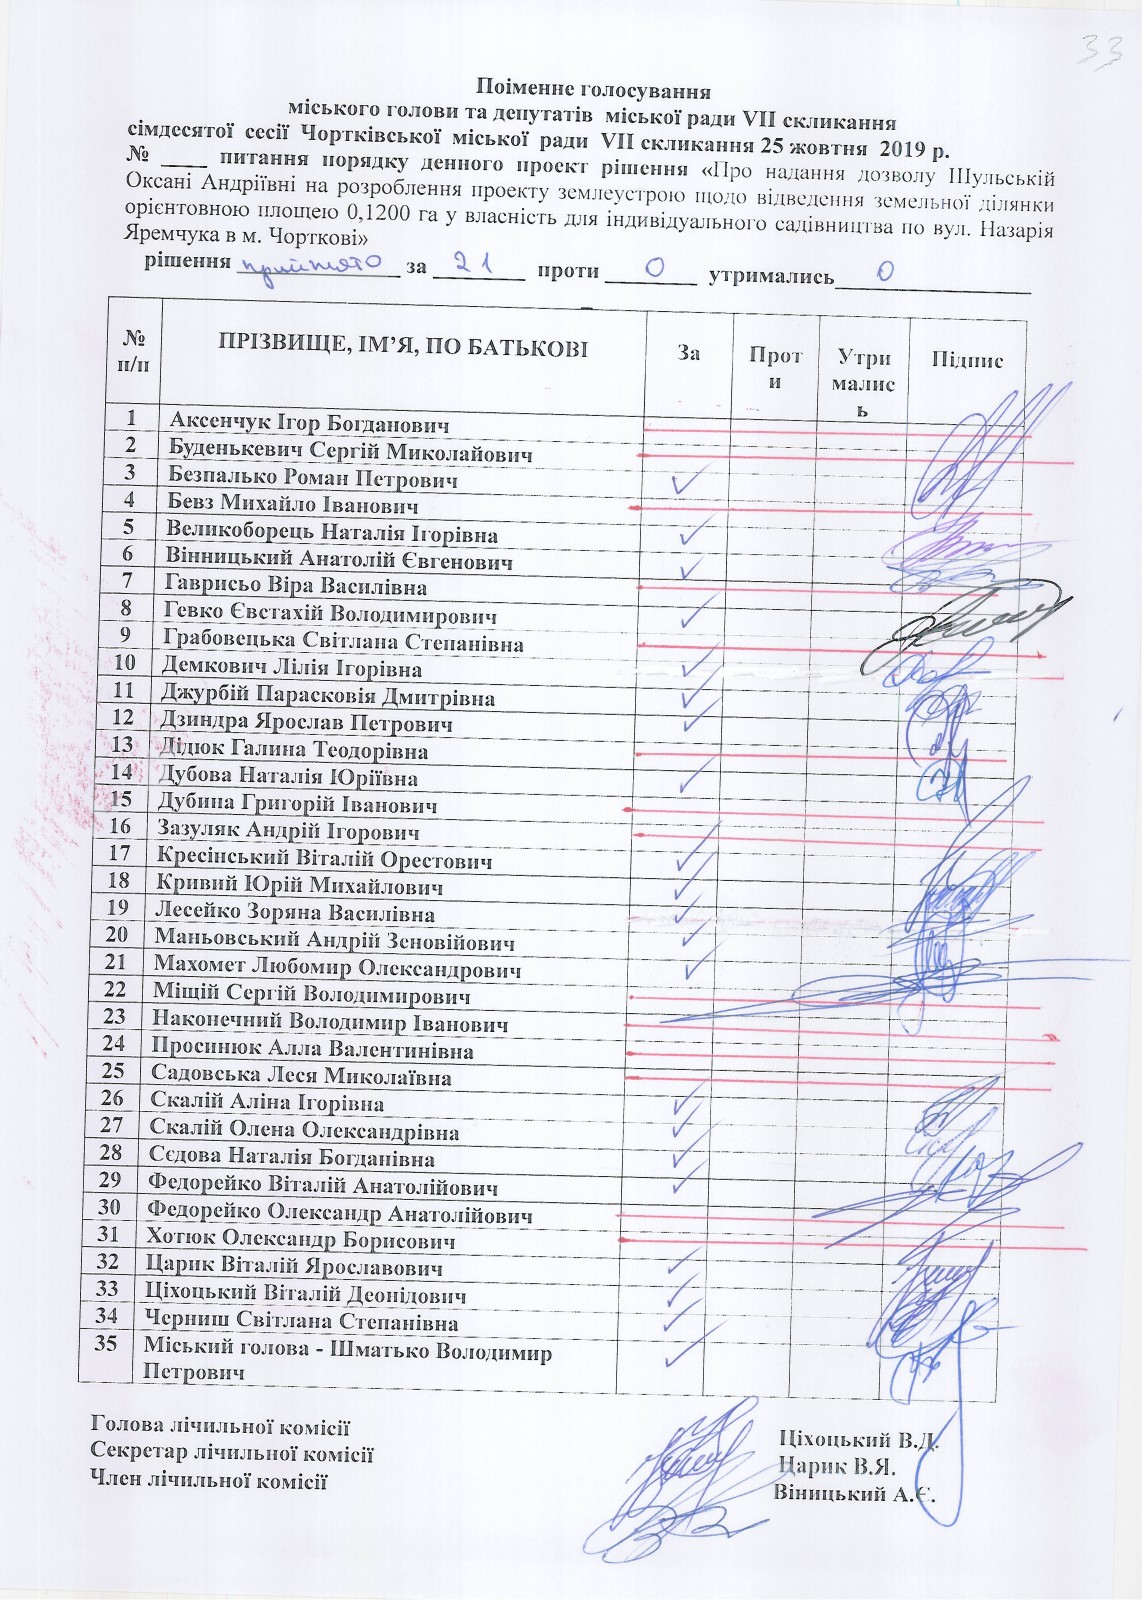 33
Поіменне голосування
міського голови та депутатів міської ради VII скликання
сімдесятої сесії Чортківської міської ради VII скликання 25 жовтня 2019 р.
№ ____ питання порядку денного проект рішення «Про надання дозволу Шульській
Оксані Андріївні на розроблення проекту землеустрою щодо відведення земельної ділянки
орієнтовною площею 0,1200 га у власність для індивідуального садівництва по вул. Назарія
Яремчука в м. Чорткові»
рішення прийнято за 21 проти 0 утримались 0
№ п/п ПРІЗВИЩЕ, ІМ’Я, ПО БАТЬКОВІ За Проти Утрималися Підпис
1 Аксенчук Ігор Богданович
2 Буденькевич Сергій Миколайович
3 Безпалько Роман Петрович ✓
4 Бевз Михайло Іванович
5 Великоборець Наталія Ігорівна ✓
6 Вінницький Анатолій Євгенович ✓
7 Гаврисьо Віра Василівна
8 Гевко Євстахій Володимирович ✓
9 Грабовецька Світлана Степанівна
10 Демкович Лілія Ігорівна ✓
11 Джурбій Парасковія Дмитрівна ✓
12 Дзиндра Ярослав Петрович ✓
13 Дідюк Галина Теодорівна
14 Дубова Наталія Юріївна ✓
15 Дубина Григорій Іванович
16 Зазуляк Андрій Ігорович
17 Кресінський Віталій Орестович ✓
18 Кривий Юрій Михайлович ✓
19 Лесейко Зоряна Василівна ✓
20 Маньовський Андрій Зеновійович ✓
21 Махомет Любомир Олександрович ✓
22 Міщій Сергій Володимирович
23 Наконечний Володимир Іванович
24 Просинюк Алла Валентинівна
25 Садовська Леся Миколаївна
26 Скалій Аліна Ігорівна ✓
27 Скалій Олена Олександрівна ✓
28 Сєдова Наталія Богданівна ✓
29 Федорейко Віталій Анатолійович ✓
30 Федорейко Олександр Анатолійович
31 Хотюк Олександр Борисович
32 Царик Віталій Ярославович ✓
33 Ціхоцький Віталій Деонідович ✓
34 Черниш Світлана Степанівна ✓
35 Міський голова - Шматько Володимир
Петрович ✓
Голова лічильної комісії Ціхоцький В.Д.
Секретар лічильної комісії Царик В.Я.
Член лічильної комісії Віницький А.Є.